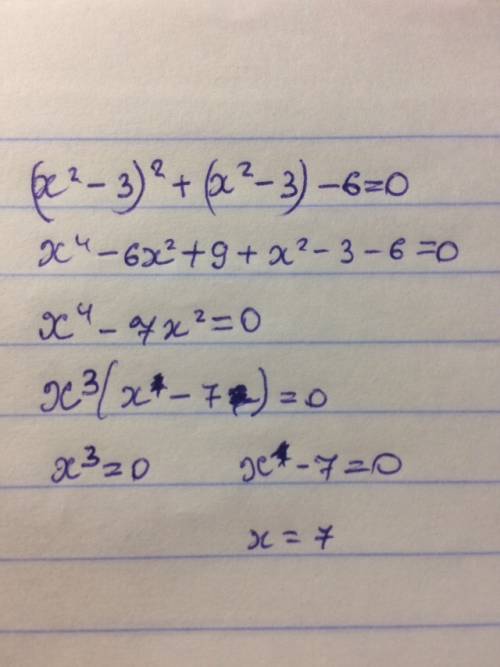 (x² - 3)² + (x² - 3) - 6 = 0
x⁴ - 6x² + 9 + x² - 3 - 6 = 0
x⁴ - 7x² = 0
x³(x - 7) = 0
x³ = 0 x - 7 = 0
x = 7